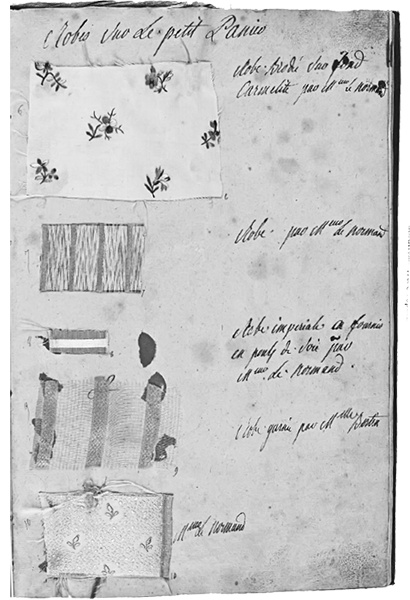 Robes Sur Le petit Panier
Robe Brodée Sur fond
Carmelite par Mme le normand
6
Robe par Mme le normand
7
Robe impériale en
en poult de Soie par
Mme le normand.
Robe garnie par Mlle Bertin
9
10
Mme le normand